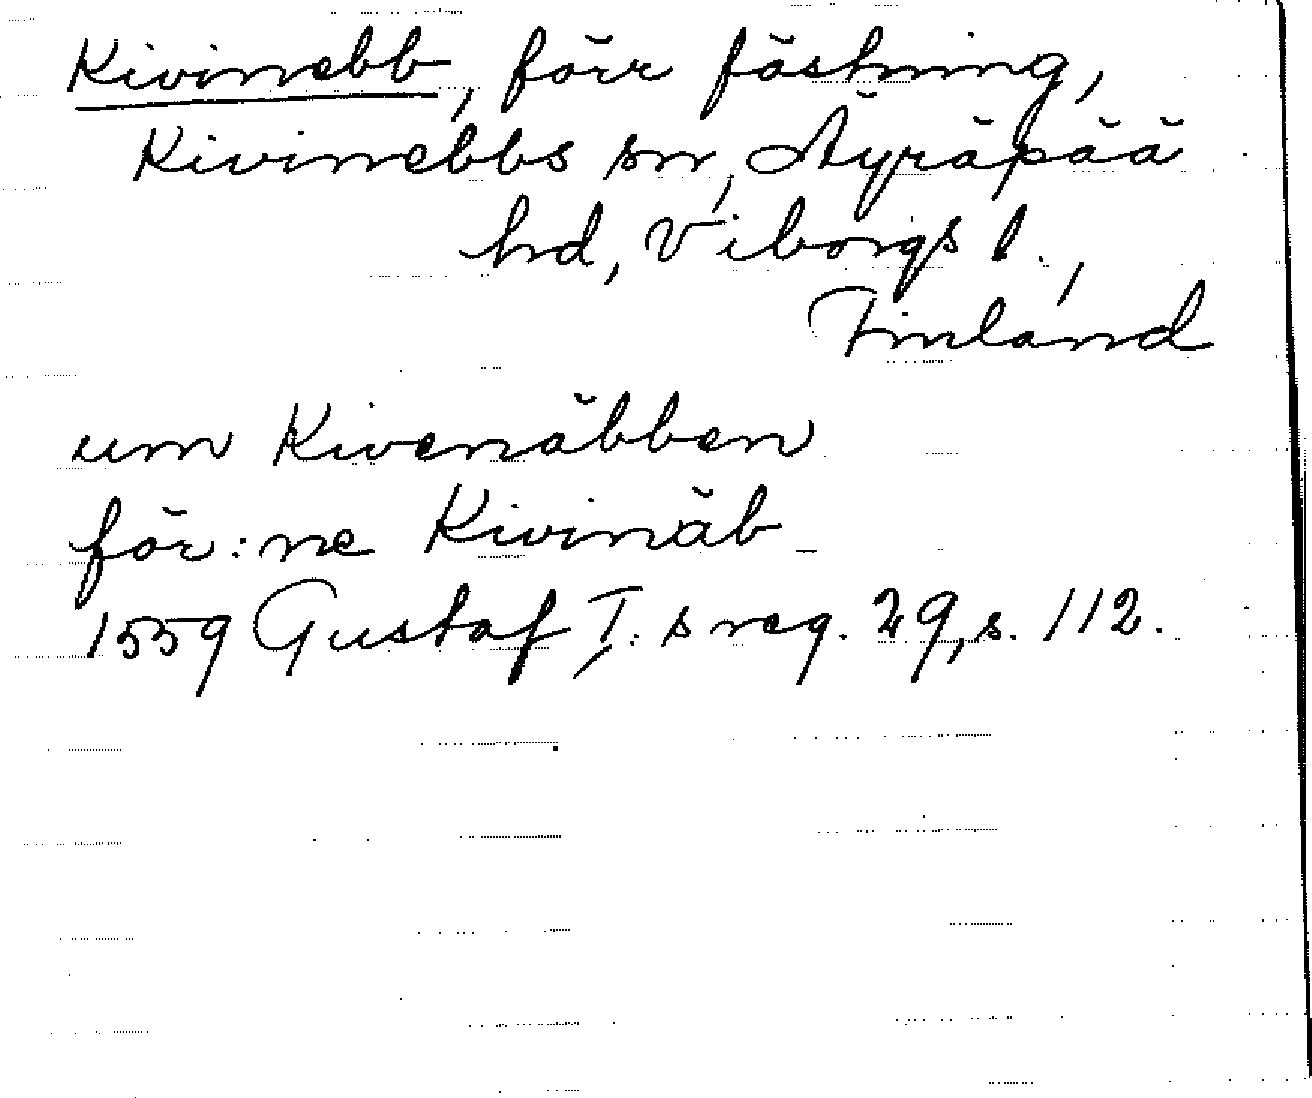 Kivinebb, förr fästning,
Kivinebbs sn, Äyräpää
hd, Viborgs l.,
Finland
um Kivenäbben
för:ne Kivinäb
1559 Gustaf I:s reg. 29, s. 112.